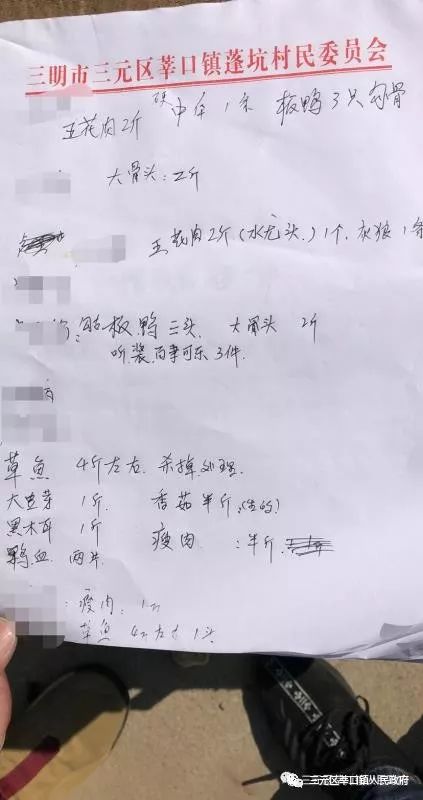 三明市三元区莘口镇蓬坑村民委员会
五花肉2斤 硬中华1条 板鸭3只
大骨头:2斤
五花肉2斤(水龙头)1个.灰狼1条
板鸭三头.大骨头 2斤
听装百事可乐3件.
草鱼 4斤左右.杀掉处理.
大豆芽 1斤 香菇半斤.(生的)
黑木耳 1斤 瘦肉:半斤.
鸭血 两片
瘦肉:1斤
草鱼 4斤左右1头
三元区莘口镇人民政府